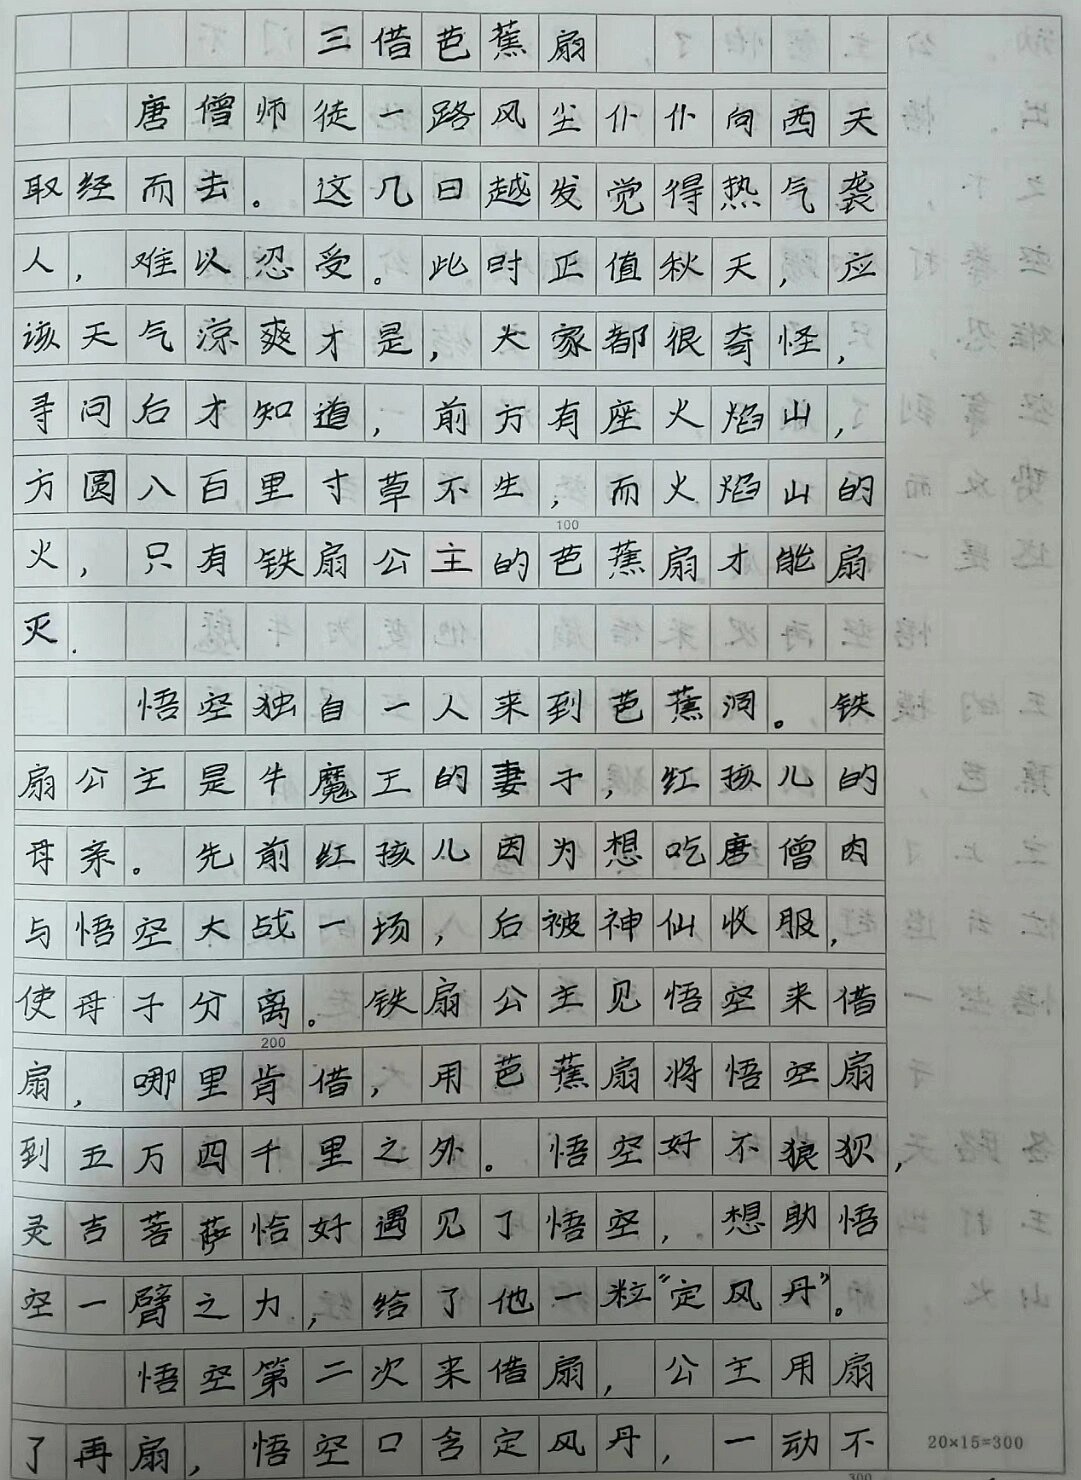 三借芭蕉扇
唐僧师徒一路风尘仆仆向西天
取经而去。这几日越发觉得热气袭
人，难以忍受。此时正值秋天，应
该天气凉爽才是，大家都很奇怪，
寻问后才知道，前方有座火焰山，
方圆八百里寸草不生，而火焰山的
100
火，只有铁扇公主的芭蕉扇才能扇
灭.
悟空独自一人来到芭蕉洞。铁
扇公主是牛魔王的妻子，红孩儿的
母亲。先前红孩儿因为想吃唐僧肉
与悟空大战一场，后被神仙收服，
使母子分离。铁扇公主见悟空来借
200
扇，哪里肯借，用芭蕉扇将悟空扇
到五万四千里之外。悟空好不狼狈，
灵吉菩萨恰好遇见了悟空，想助悟
空一臂之力，给了他一粒“定风丹”。
悟空第二次来借扇，公主用扇
了再扇，悟空口含定风丹，一动不
20×15=300
300